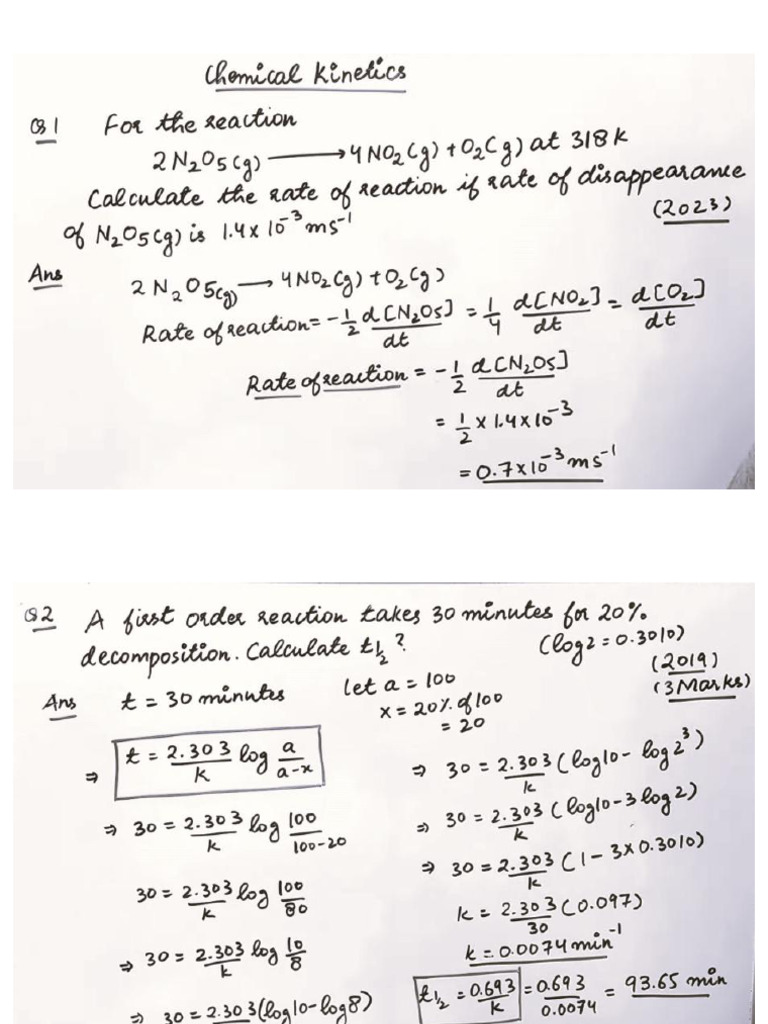 Chemical Kinetics
Q1 For the reaction
2N2O5(g) → 4NO2(g) + O2(g) at 318K
Calculate the rate of reaction if rate of disappearance
of N2O5(g) is 1.4 x 10^-3 ms^-1 (2023)
Ans 2N2O5(g) → 4NO2(g) + O2(g)
Rate of reaction = -1/2 d[N2O5]/dt = 1/4 d[NO2]/dt = d[O2]/dt
Rate of reaction = -1/2 d[N2O5]/dt
= 1/2 x 1.4 x 10^-3
= 0.7 x 10^-3 ms^-1
Q2 A first order reaction takes 30 minutes for 20%
decomposition. Calculate t1/2? (log2 = 0.3010)
(2019)
(3 Marks)
Ans t = 30 minutes
let a = 100
x = 20% of 100
= 20
⇒ t = 2.303/k log a/a-x
⇒ 30 = 2.303/k log 100/100-20
30 = 2.303/k log 100/80
⇒ 30 = 2.303/k log 10/8
⇒ 30 = 2.303(log10 - log8)
⇒ 30 = 2.303/k (log10 - log2^3)
⇒ 30 = 2.303/k (log10 - 3log2)
⇒ 30 = 2.303/k (1 - 3x0.3010)
k = 2.303/30 (0.097)
k = 0.0074 min^-1
t1/2 = 0.693/k = 0.693/0.0074 = 93.65 min